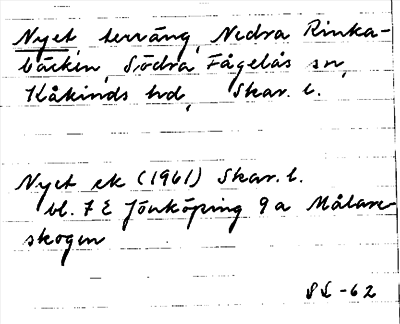 Nyet terräng, Nedra Rinka-
bäcken, Södra Fågelås sn,
Kåkinds hd, Skar. l.
Nyet ek (1961) Skar. l.
bl. 7 E Jönköping 9 a Målare-
skogen
-62